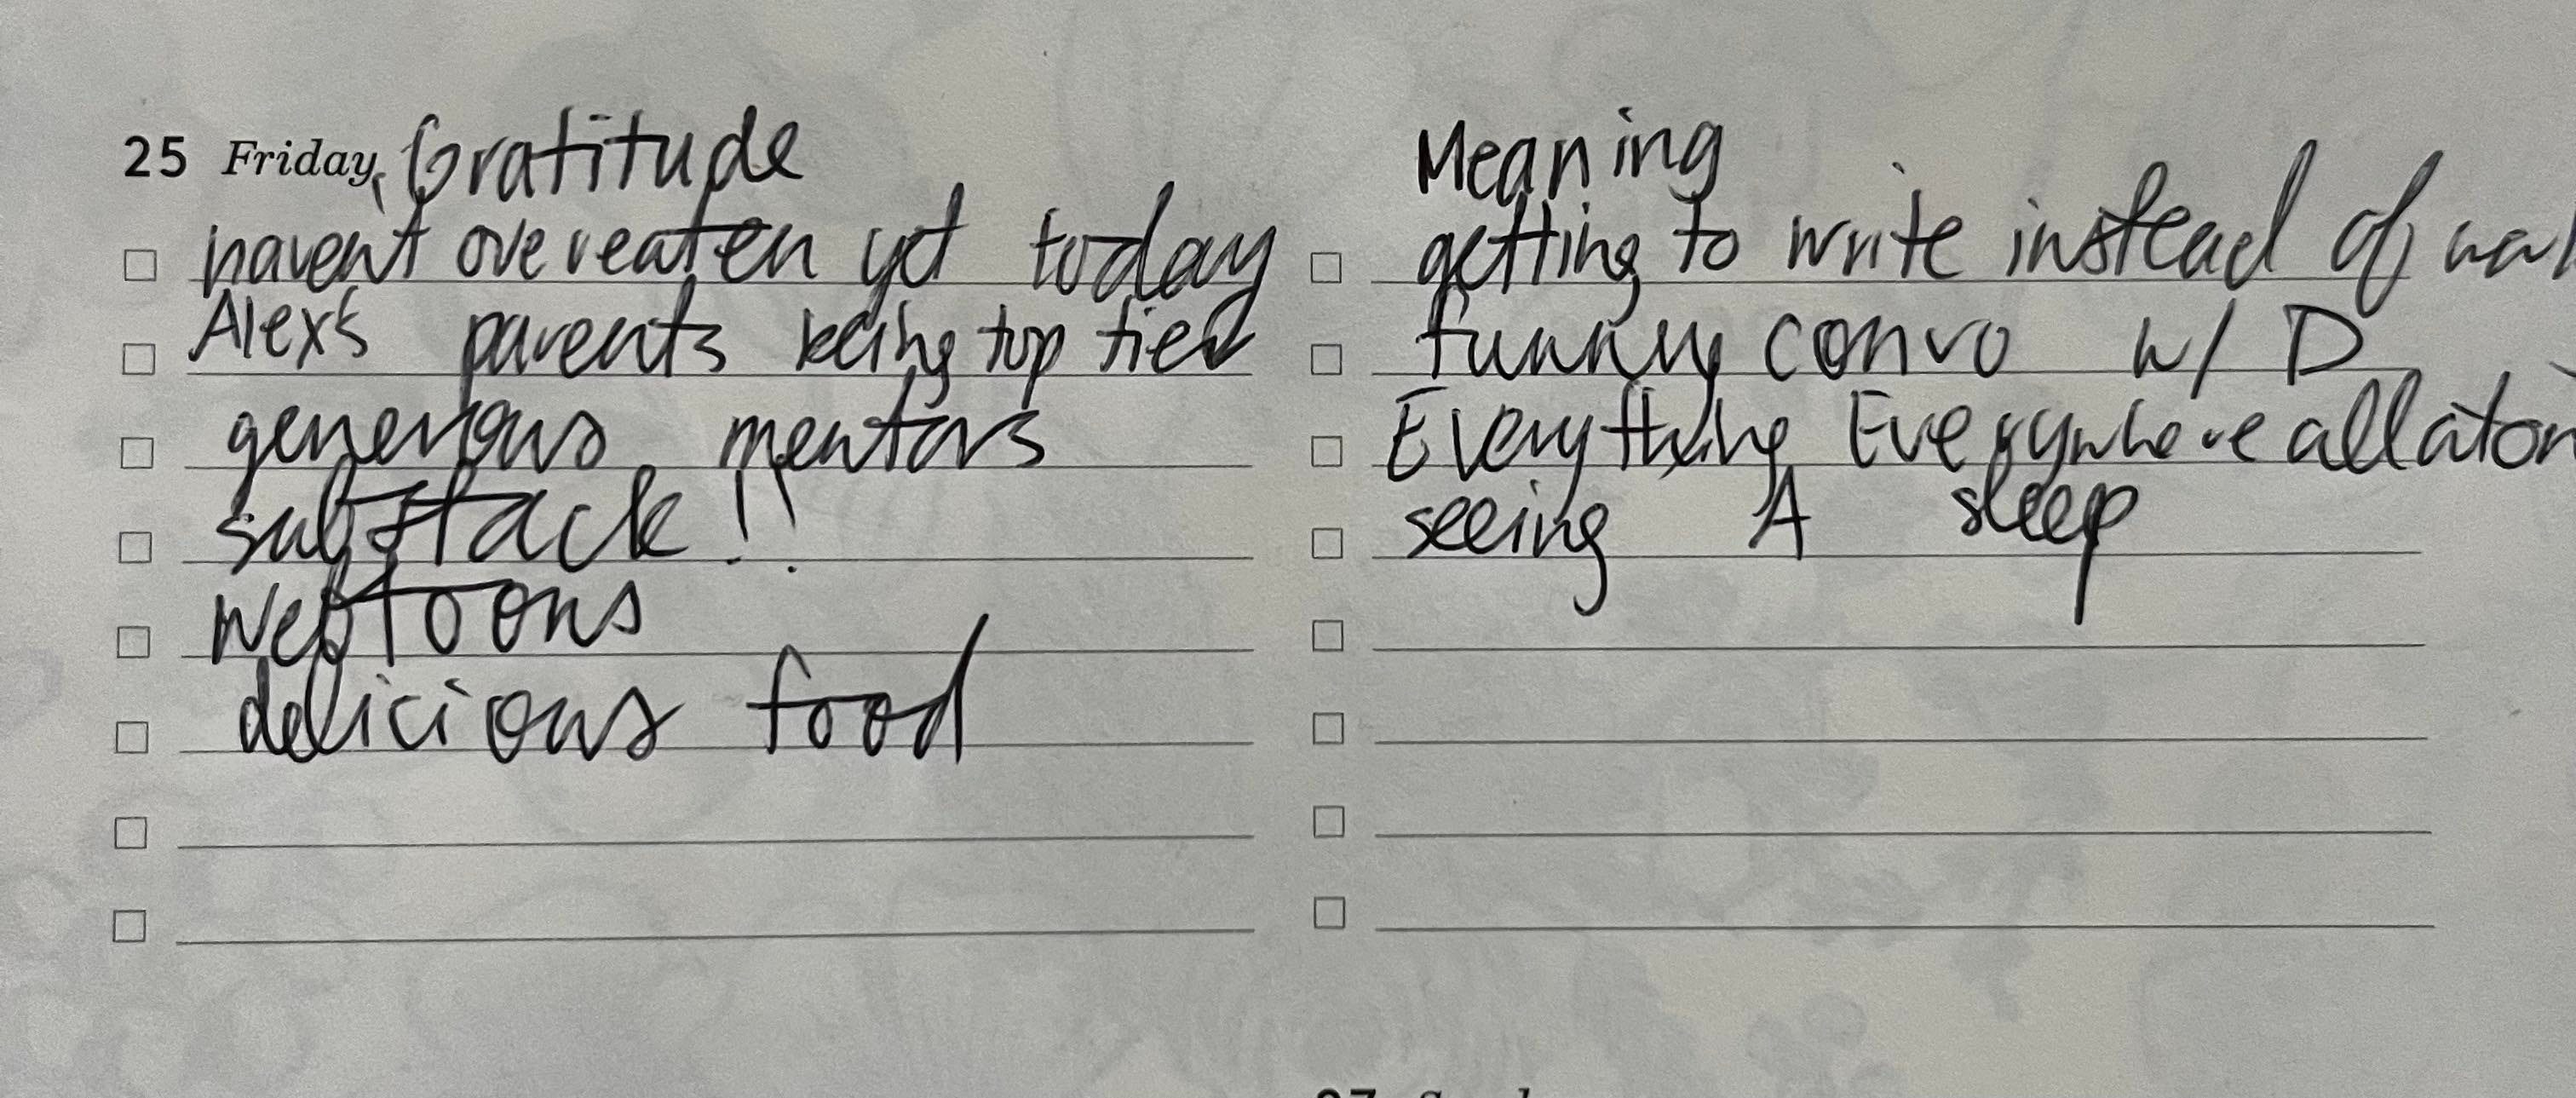 25 Friday Gratitude
havent overeaten yet today
Alex's parents being top tier
generous mentors
substack!!
webtoons
delicious food
Meaning
getting to write instead of
funny convo w/ D
Everything Everywhere all at on
seeing A sleep